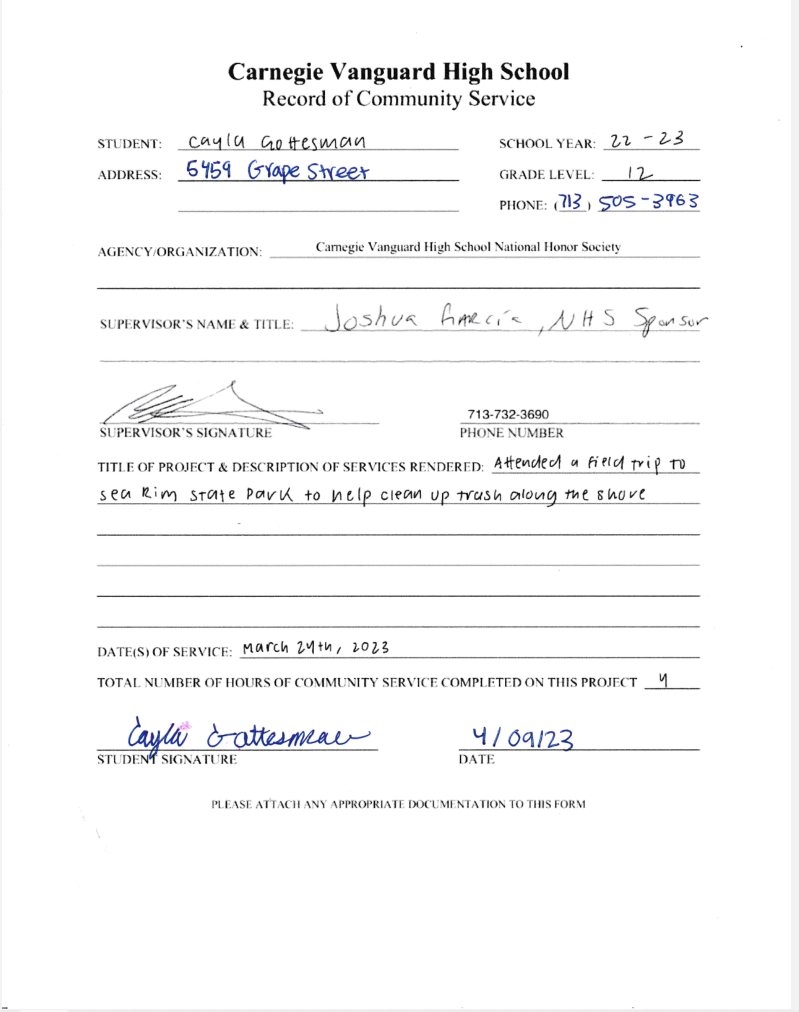 Carnegie Vanguard High School
Record of Community Service
STUDENT: Cayla Gottesman SCHOOL YEAR: 22-23
ADDRESS: 5459 Grape Street GRADE LEVEL: 12
PHONE: (713) 505-3963
AGENCY/ORGANIZATION: Carnegie Vanguard High School National Honor Society
SUPERVISOR'S NAME & TITLE: Joshua Garcia, NHS Sponsor
713-732-3690
SUPERVISOR'S SIGNATURE PHONE NUMBER
TITLE OF PROJECT & DESCRIPTION OF SERVICES RENDERED: Attended a field trip to
sea Rim state Park to help clean up trash along the shore
DATE(S) OF SERVICE: March 24th, 2023
TOTAL NUMBER OF HOURS OF COMMUNITY SERVICE COMPLETED ON THIS PROJECT 4
Cayla Gottesman 4/09/23
STUDENT SIGNATURE DATE
PLEASE ATTACH ANY APPROPRIATE DOCUMENTATION TO THIS FORM